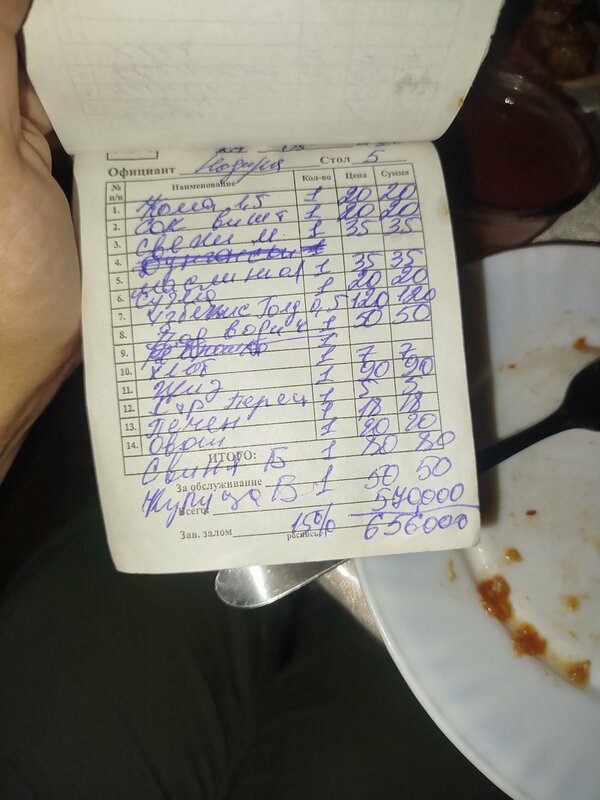 Официант Нодира Стол 5
№ п/п Наименование Кол-во Цена Сумма
1. Кола 1.5 1 20 20
2. Сок вишт 1 20 20
3. свежи м 1 35 35
4.
5. маслиноя 1 35 35
6. сузма 1 20 20
7. Узбекис Голд 0,5 120 120
8. Пор 1 50 50
9. 1
10. хлеб 1 7 7
11. Жиз 1 90 90
12. 1 5 5
13. Печен 1 18 18
14. Овощ 1 20 20
ИТОГО:
Свиня Б 1 80 80
За обслуживание
Куруца В 1 50 50
Всего: 570000
Зав. залом 15% роспись 656000